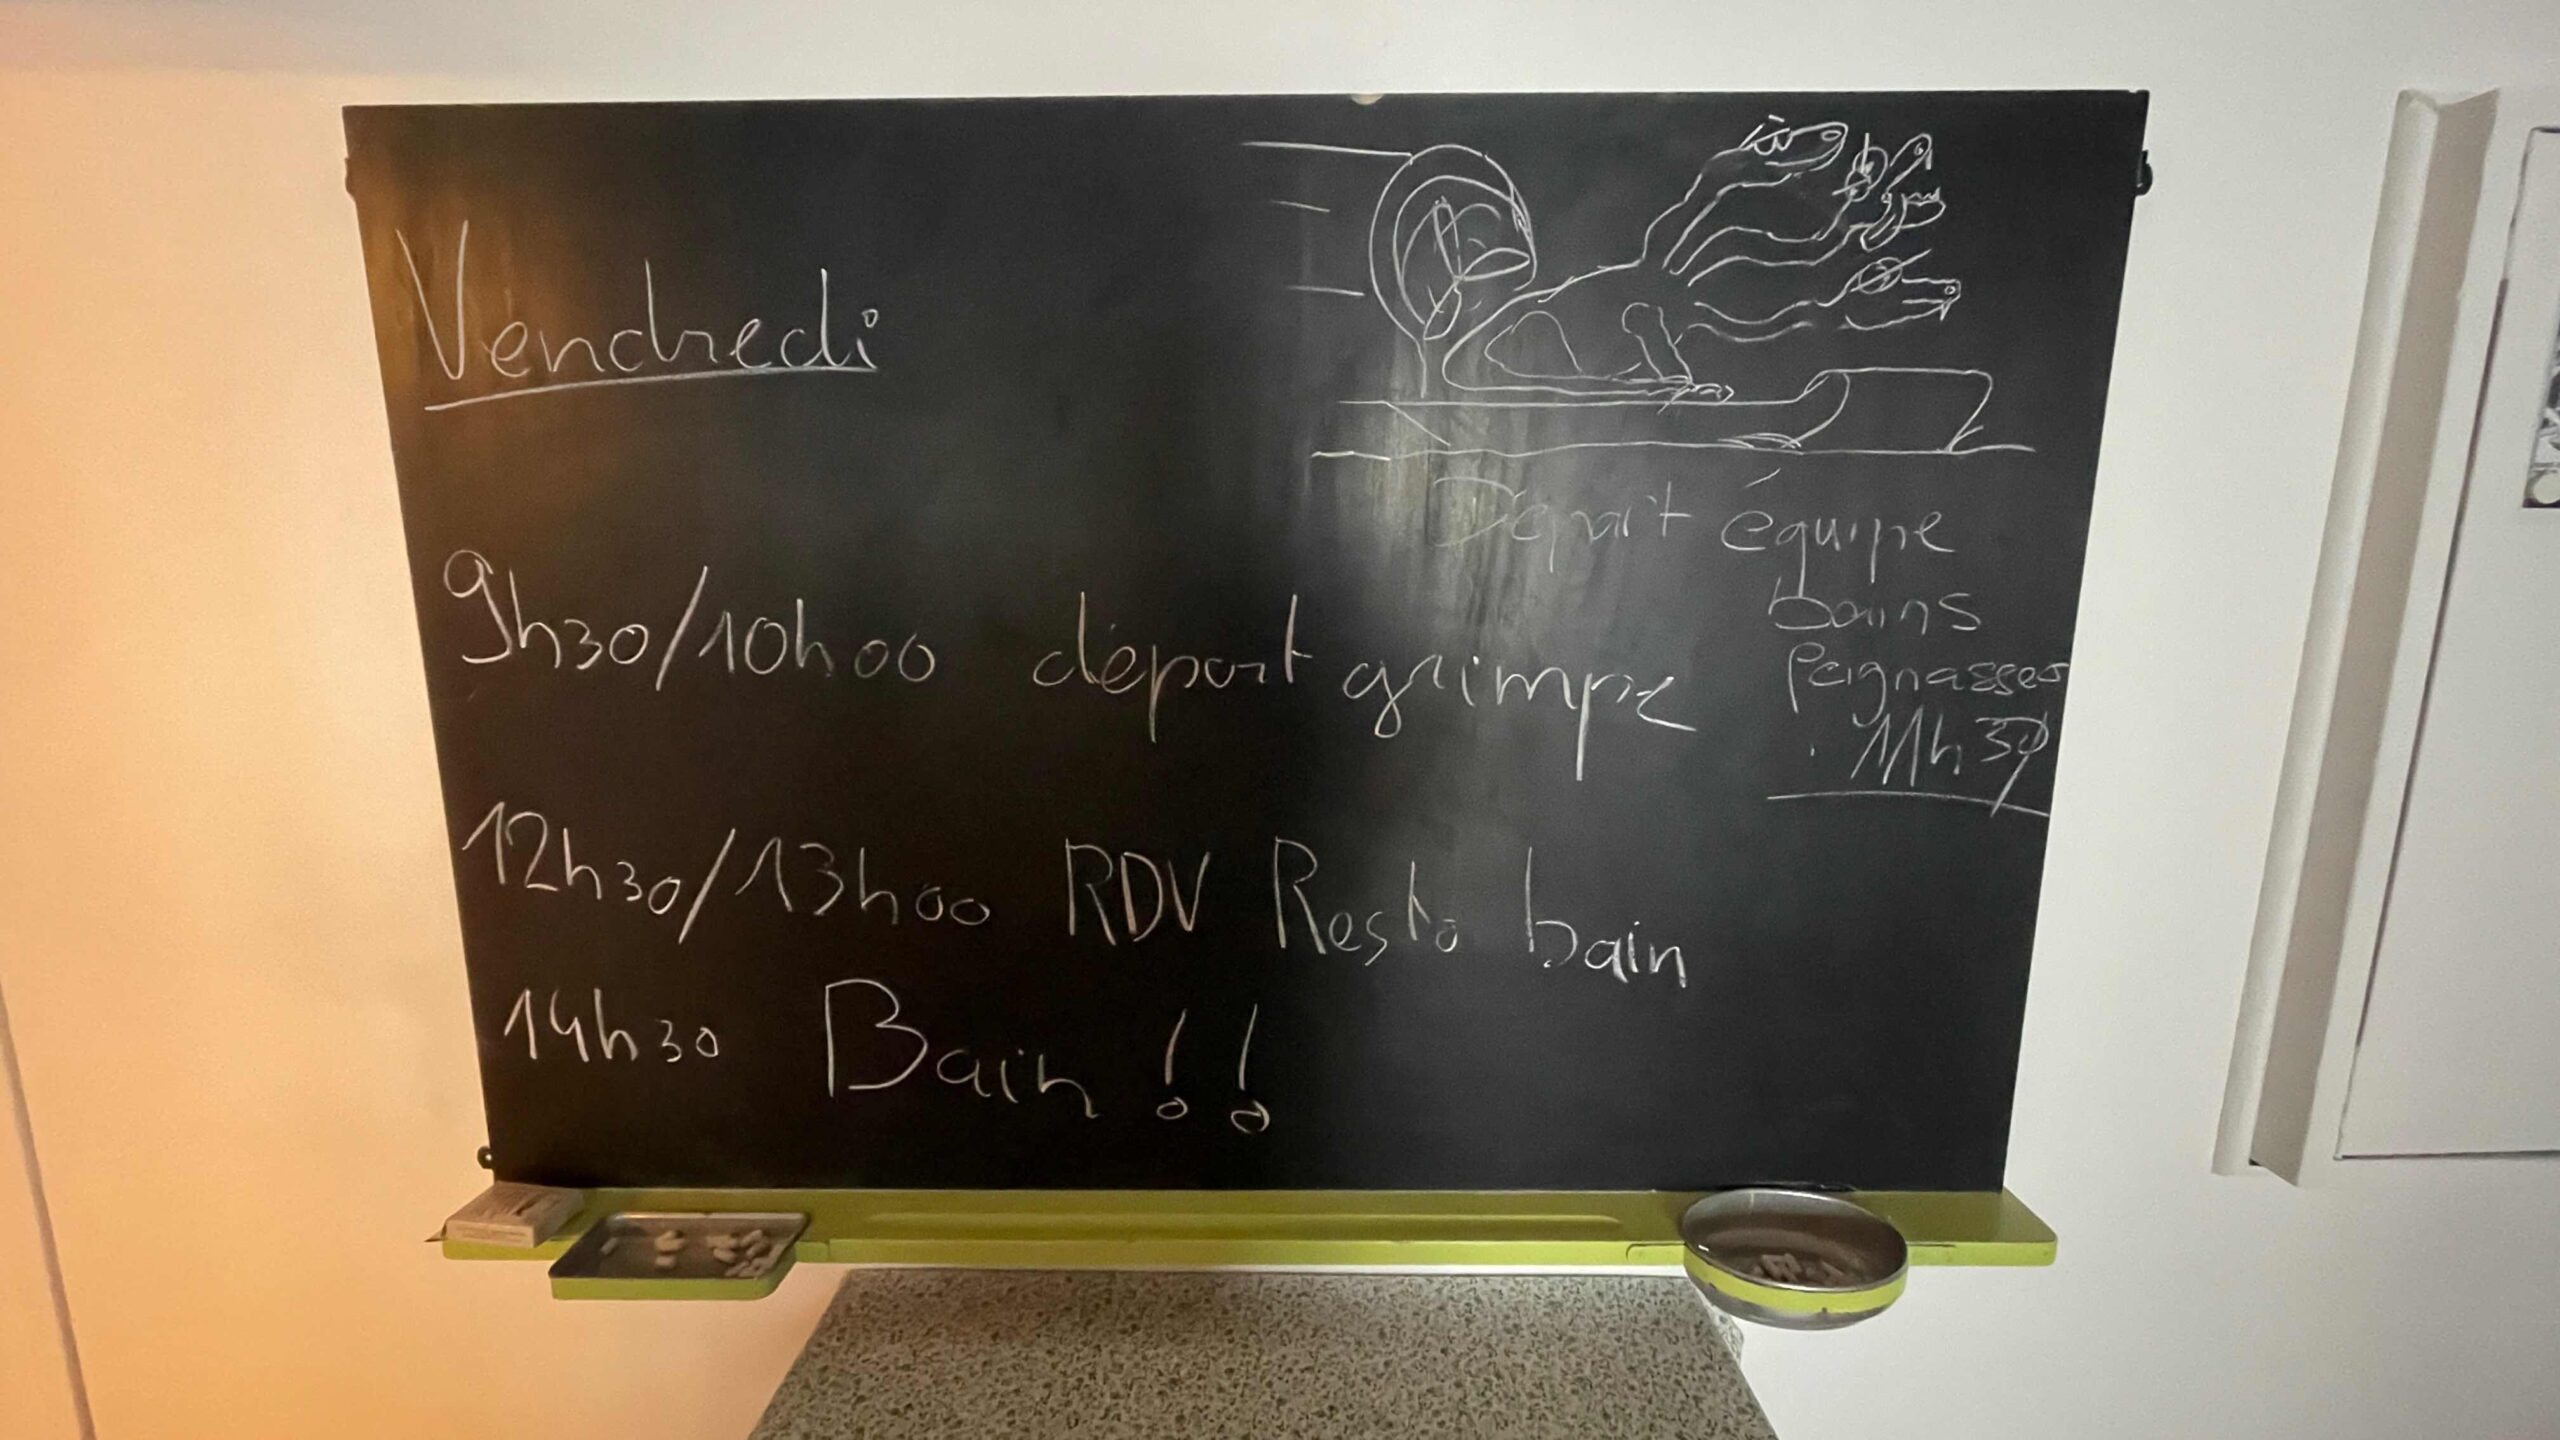 Vendredi
9h30/10h00 départ grimpe
12h30/13h00 RDV Resto bain
14h30 Bain !!
Départ équipe
bains
Peignasses
11h30